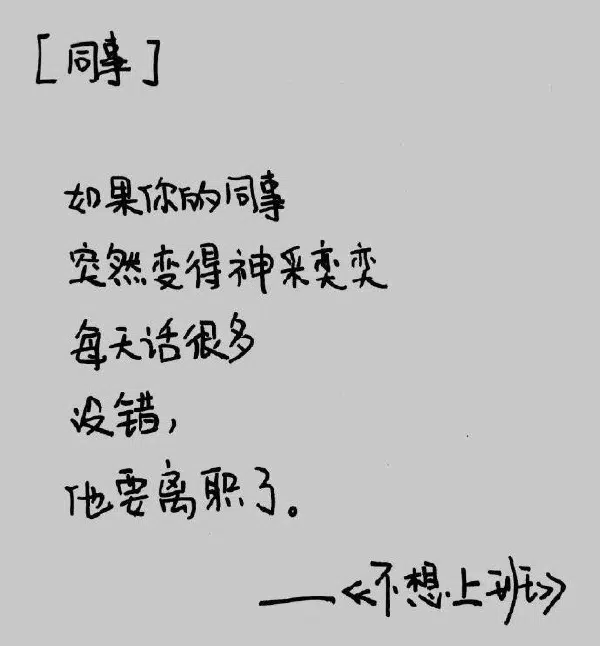 [同事]
如果你的同事
突然变得神采奕奕
每天话很多
没错,
他要离职了。
——《不想上班》